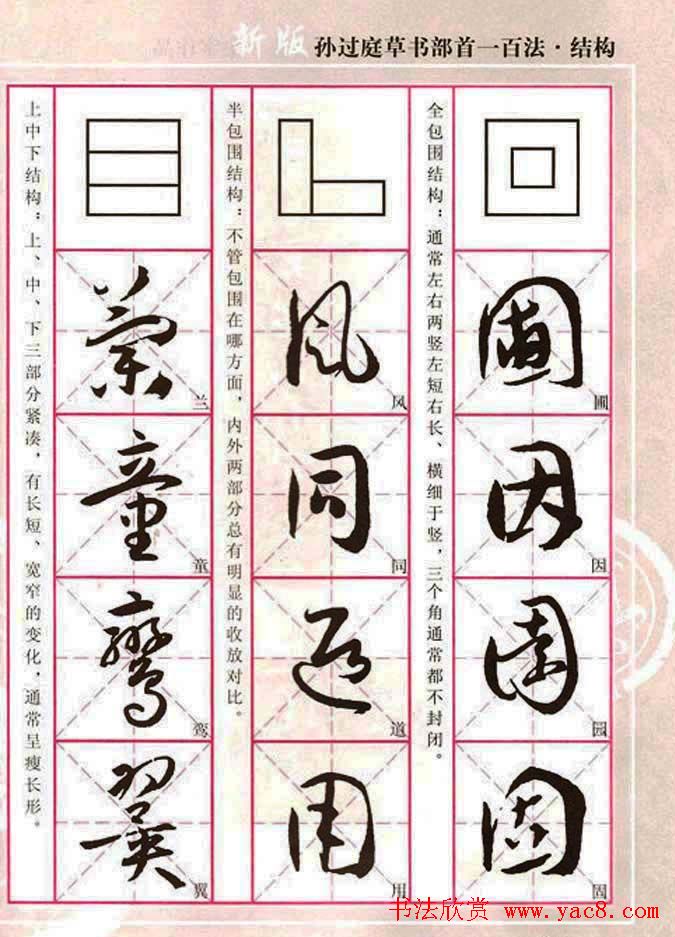 新版 孙过庭草书部首一百法·结构
全包围结构：通常左右两竖左短右长、横细于竖，三个角通常都不封闭。
圃
因
园
固
半包围结构：不管包围在哪方面，内外两部分总有明显的收放对比。
风
同
道
用
上中下结构：上、中、下三部分紧凑，有长短、宽窄的变化，通常呈瘦长形。
兰
童
鸾
翼
书法欣赏 www.yac8.com